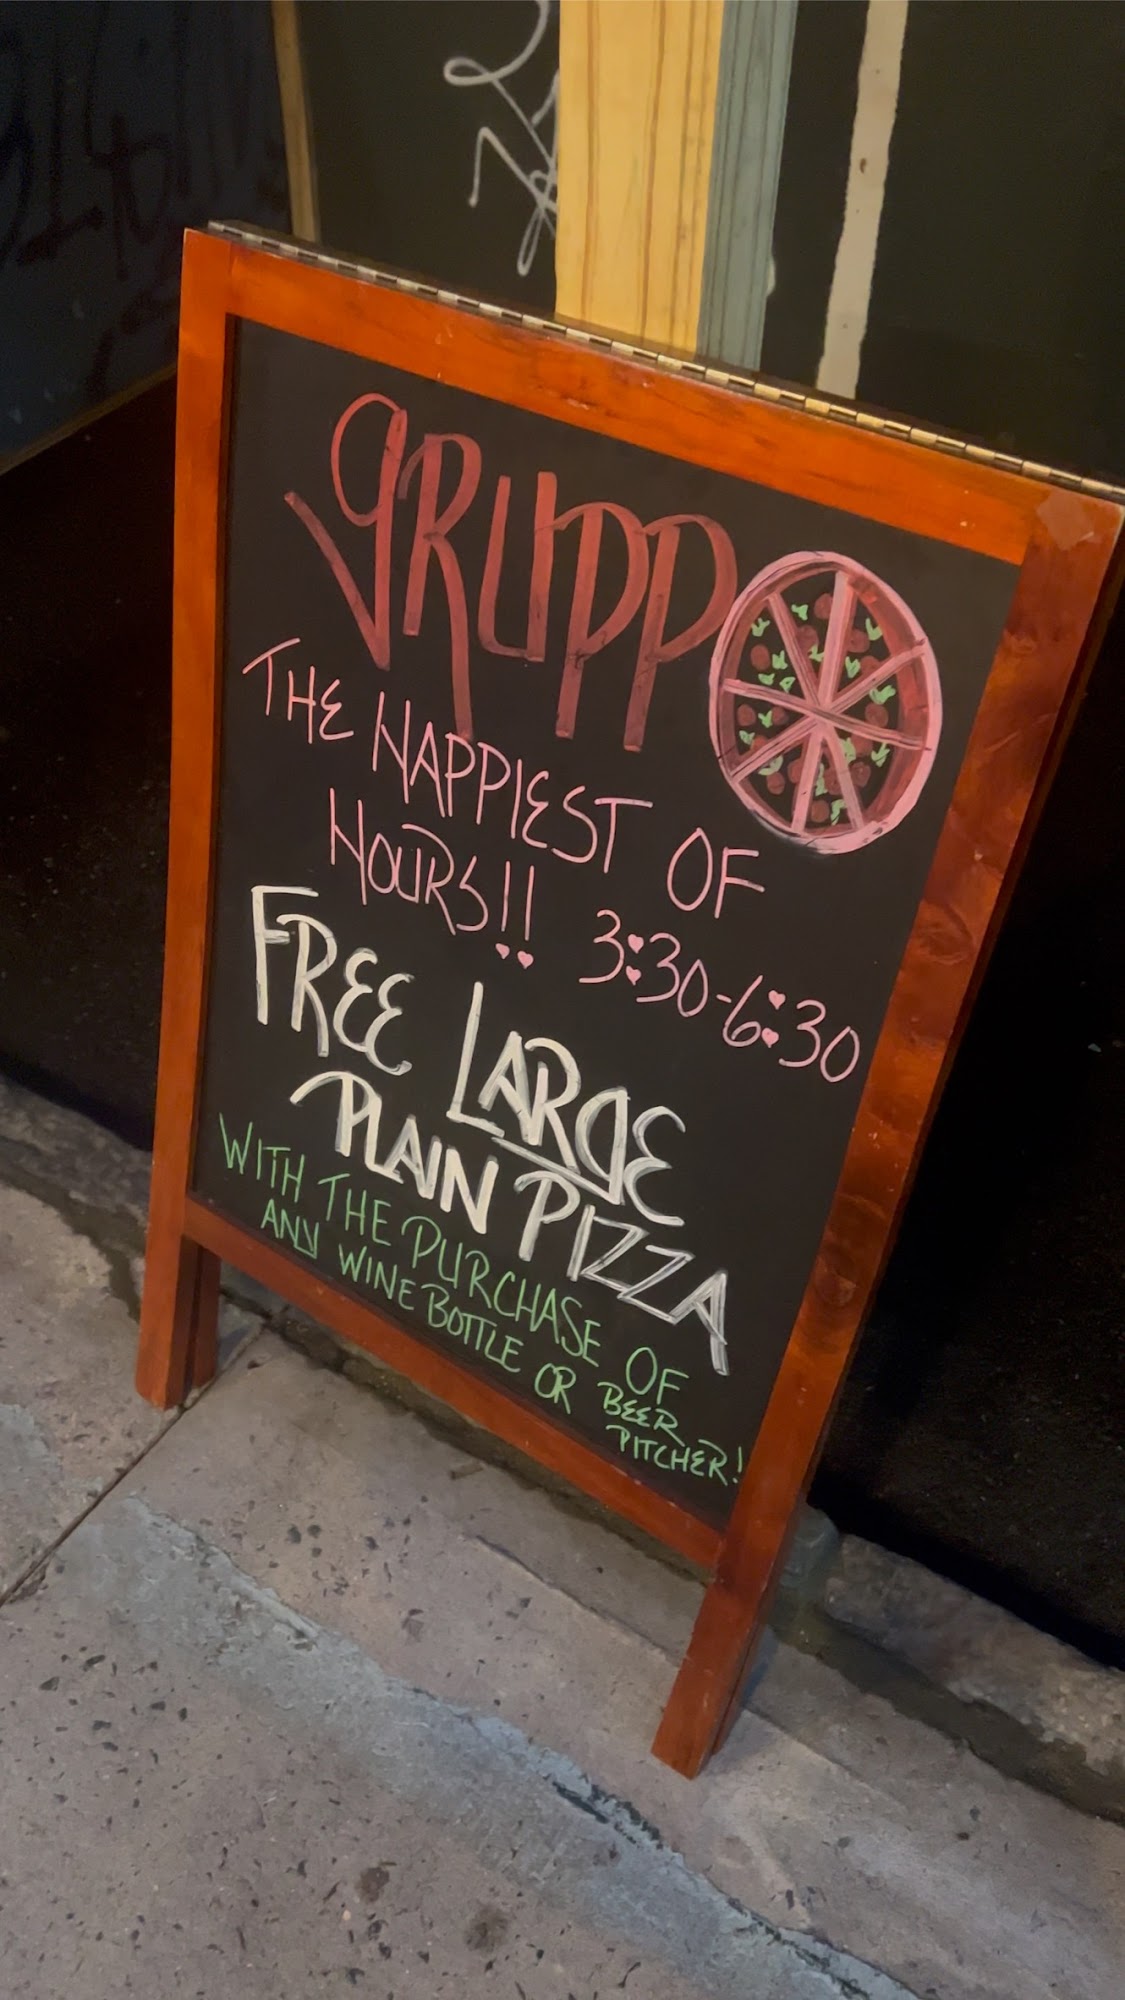 GRUPPO
THE HAPPIEST OF
HOURS!! 3:30-6:30
FREE LARGE
PLAIN PIZZA
WITH THE PURCHASE OF
ANY WINE BOTTLE OR BEER
PITCHER!